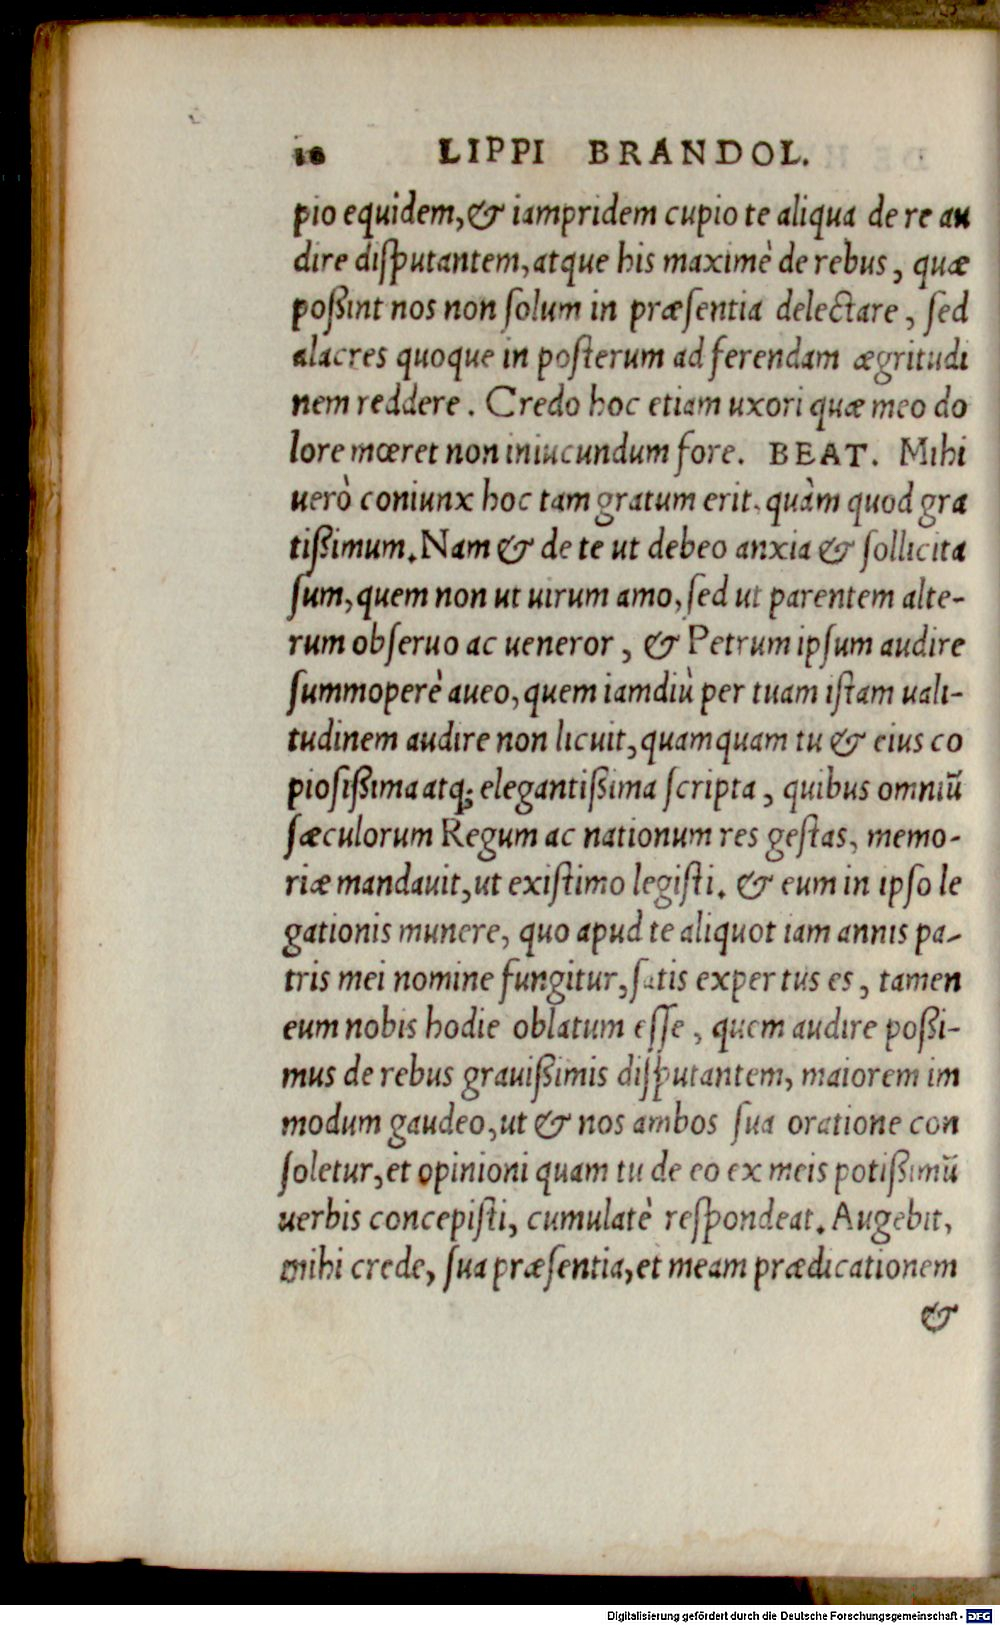 16 LIPPI BRANDOL.
pio equidem, & iampridem cupio te aliqua de re au
dire diſputantem, atque his maximè de rebus, quæ
poßint nos non ſolum in præſentia delectare, ſed
alacres quoque in poſterum ad ferendam ægritudi
nem reddere. Credo hoc etiam uxori quæ meo do
lore mœret non iniucundum fore. BEAT. Mihi
uerò coniunx hoc tam gratum erit, quàm quod gra
tißimum. Nam & de te ut debeo anxia & ſollicita
ſum, quem non ut uirum amo, ſed ut parentem alte-
rum obſeruo ac ueneror, & Petrum ipſum audire
ſummoperè aueo, quem iamdiù per tuam iſtam uali-
tudinem audire non licuit, quamquam tu & eius co
pioſißima atq; elegantißima ſcripta, quibus omniũ
ſæculorum Regum ac nationum res geſtas, memo-
riæ mandauit, ut exiſtimo legiſti. & eum in ipſo le
gationis munere, quo apud te aliquot iam annis pa-
tris mei nomine fungitur, ſatis expertus es, tamen
eum nobis hodie oblatum eſſe, quem audire poßi-
mus de rebus grauißimis diſputantem, maiorem im
modum gaudeo, ut & nos ambos ſua oratione con
ſoletur, et opinioni quam tu de eo ex meis potißimũ
uerbis concepiſti, cumulatè reſpondeat. Augebit,
mihi crede, ſua præſentia, et meam prædicationem
&
Digitalisierung gefördert durch die Deutsche Forschungsgemeinschaft - DFG